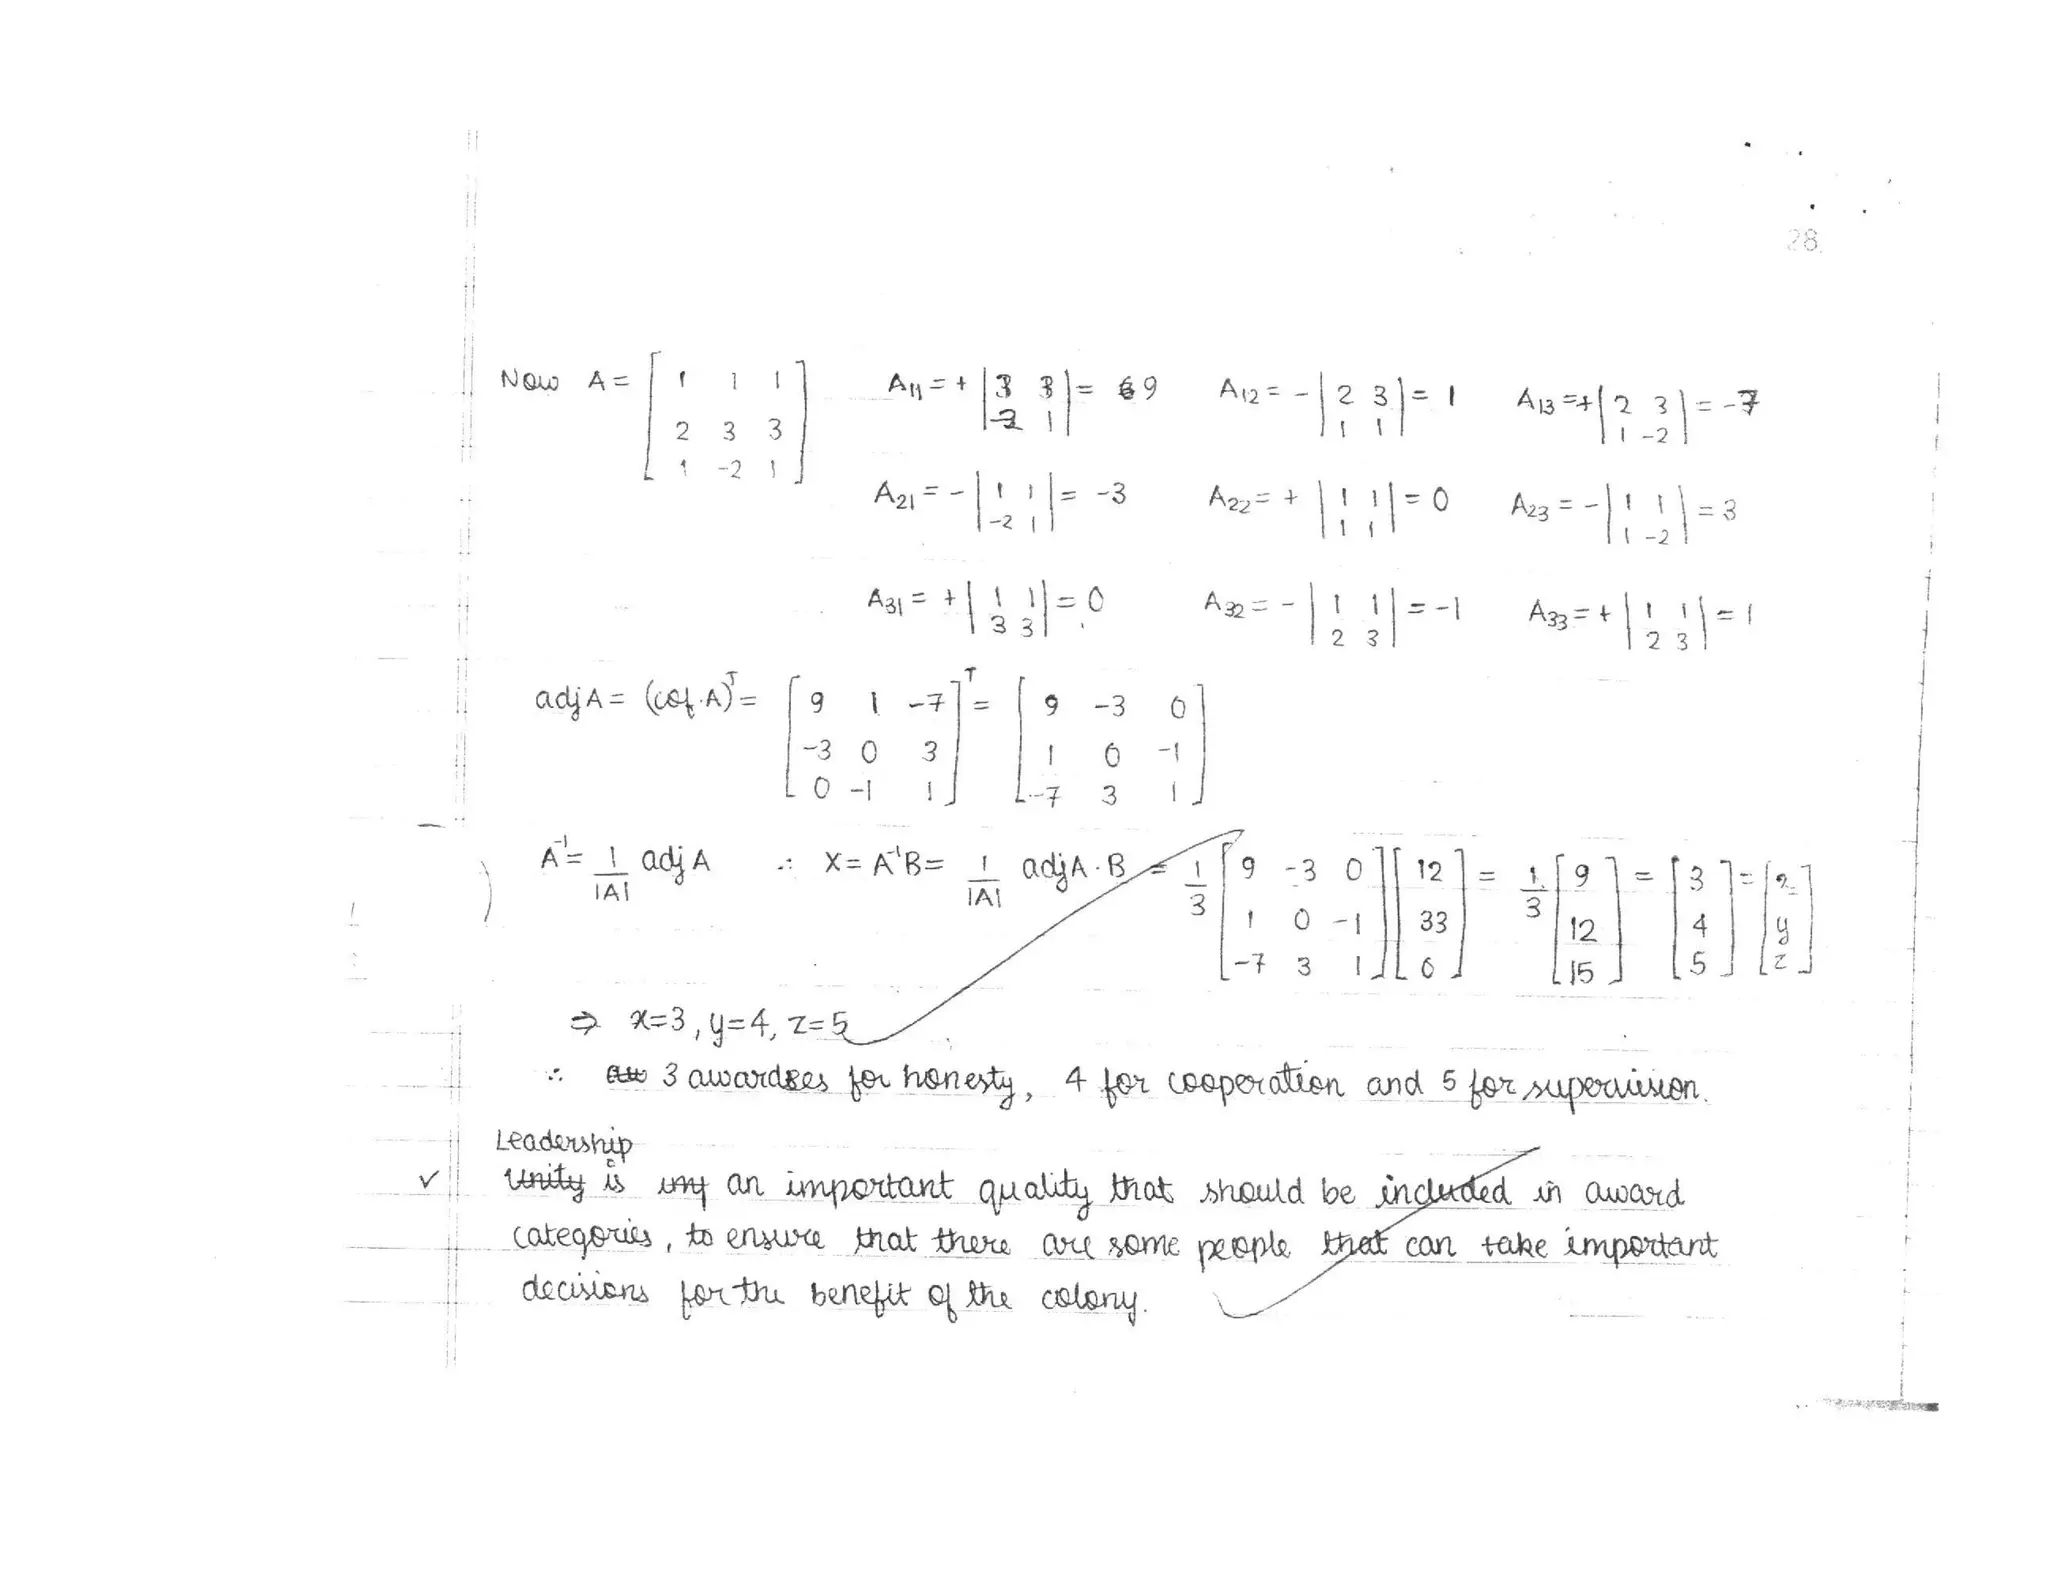 28.
Now A = [ 1 1 1 ; 2 3 3 ; 1 -2 1 ] A11 = + | 3 3 ; -2 1 | = 9 A12 = - | 2 3 ; 1 1 | = 1 A13 = + | 2 3 ; 1 -2 | = -7
A21 = - | 1 1 ; -2 1 | = -3 A22 = + | 1 1 ; 1 1 | = 0 A23 = - | 1 1 ; 1 -2 | = 3
A31 = + | 1 1 ; 3 3 | = 0 A32 = - | 1 1 ; 2 3 | = -1 A33 = + | 1 1 ; 2 3 | = 1
adj A = (cof. A)^T = [ 9 1 -7 ; -3 0 3 ; 0 -1 1 ]^T = [ 9 -3 0 ; 1 0 -1 ; -7 3 1 ]
A^-1 = 1/|A| adj A ∴ X = A^-1 B = 1/|A| adj A · B = 1/3 [ 9 -3 0 ; 1 0 -1 ; -7 3 1 ] [ 12 ; 33 ; 0 ] = 1/3 [ 9 ; 12 ; 15 ] = [ 3 ; 4 ; 5 ] = [ x ; y ; z ]
⇒ x=3, y=4, z=5
∴ 3 awardees for honesty, 4 for cooperation and 5 for supervision.
Leadership
✓ unity is an important quality that should be included in award
categories, to ensure that there are some people that can take important
decisions for the benefit of the colony.